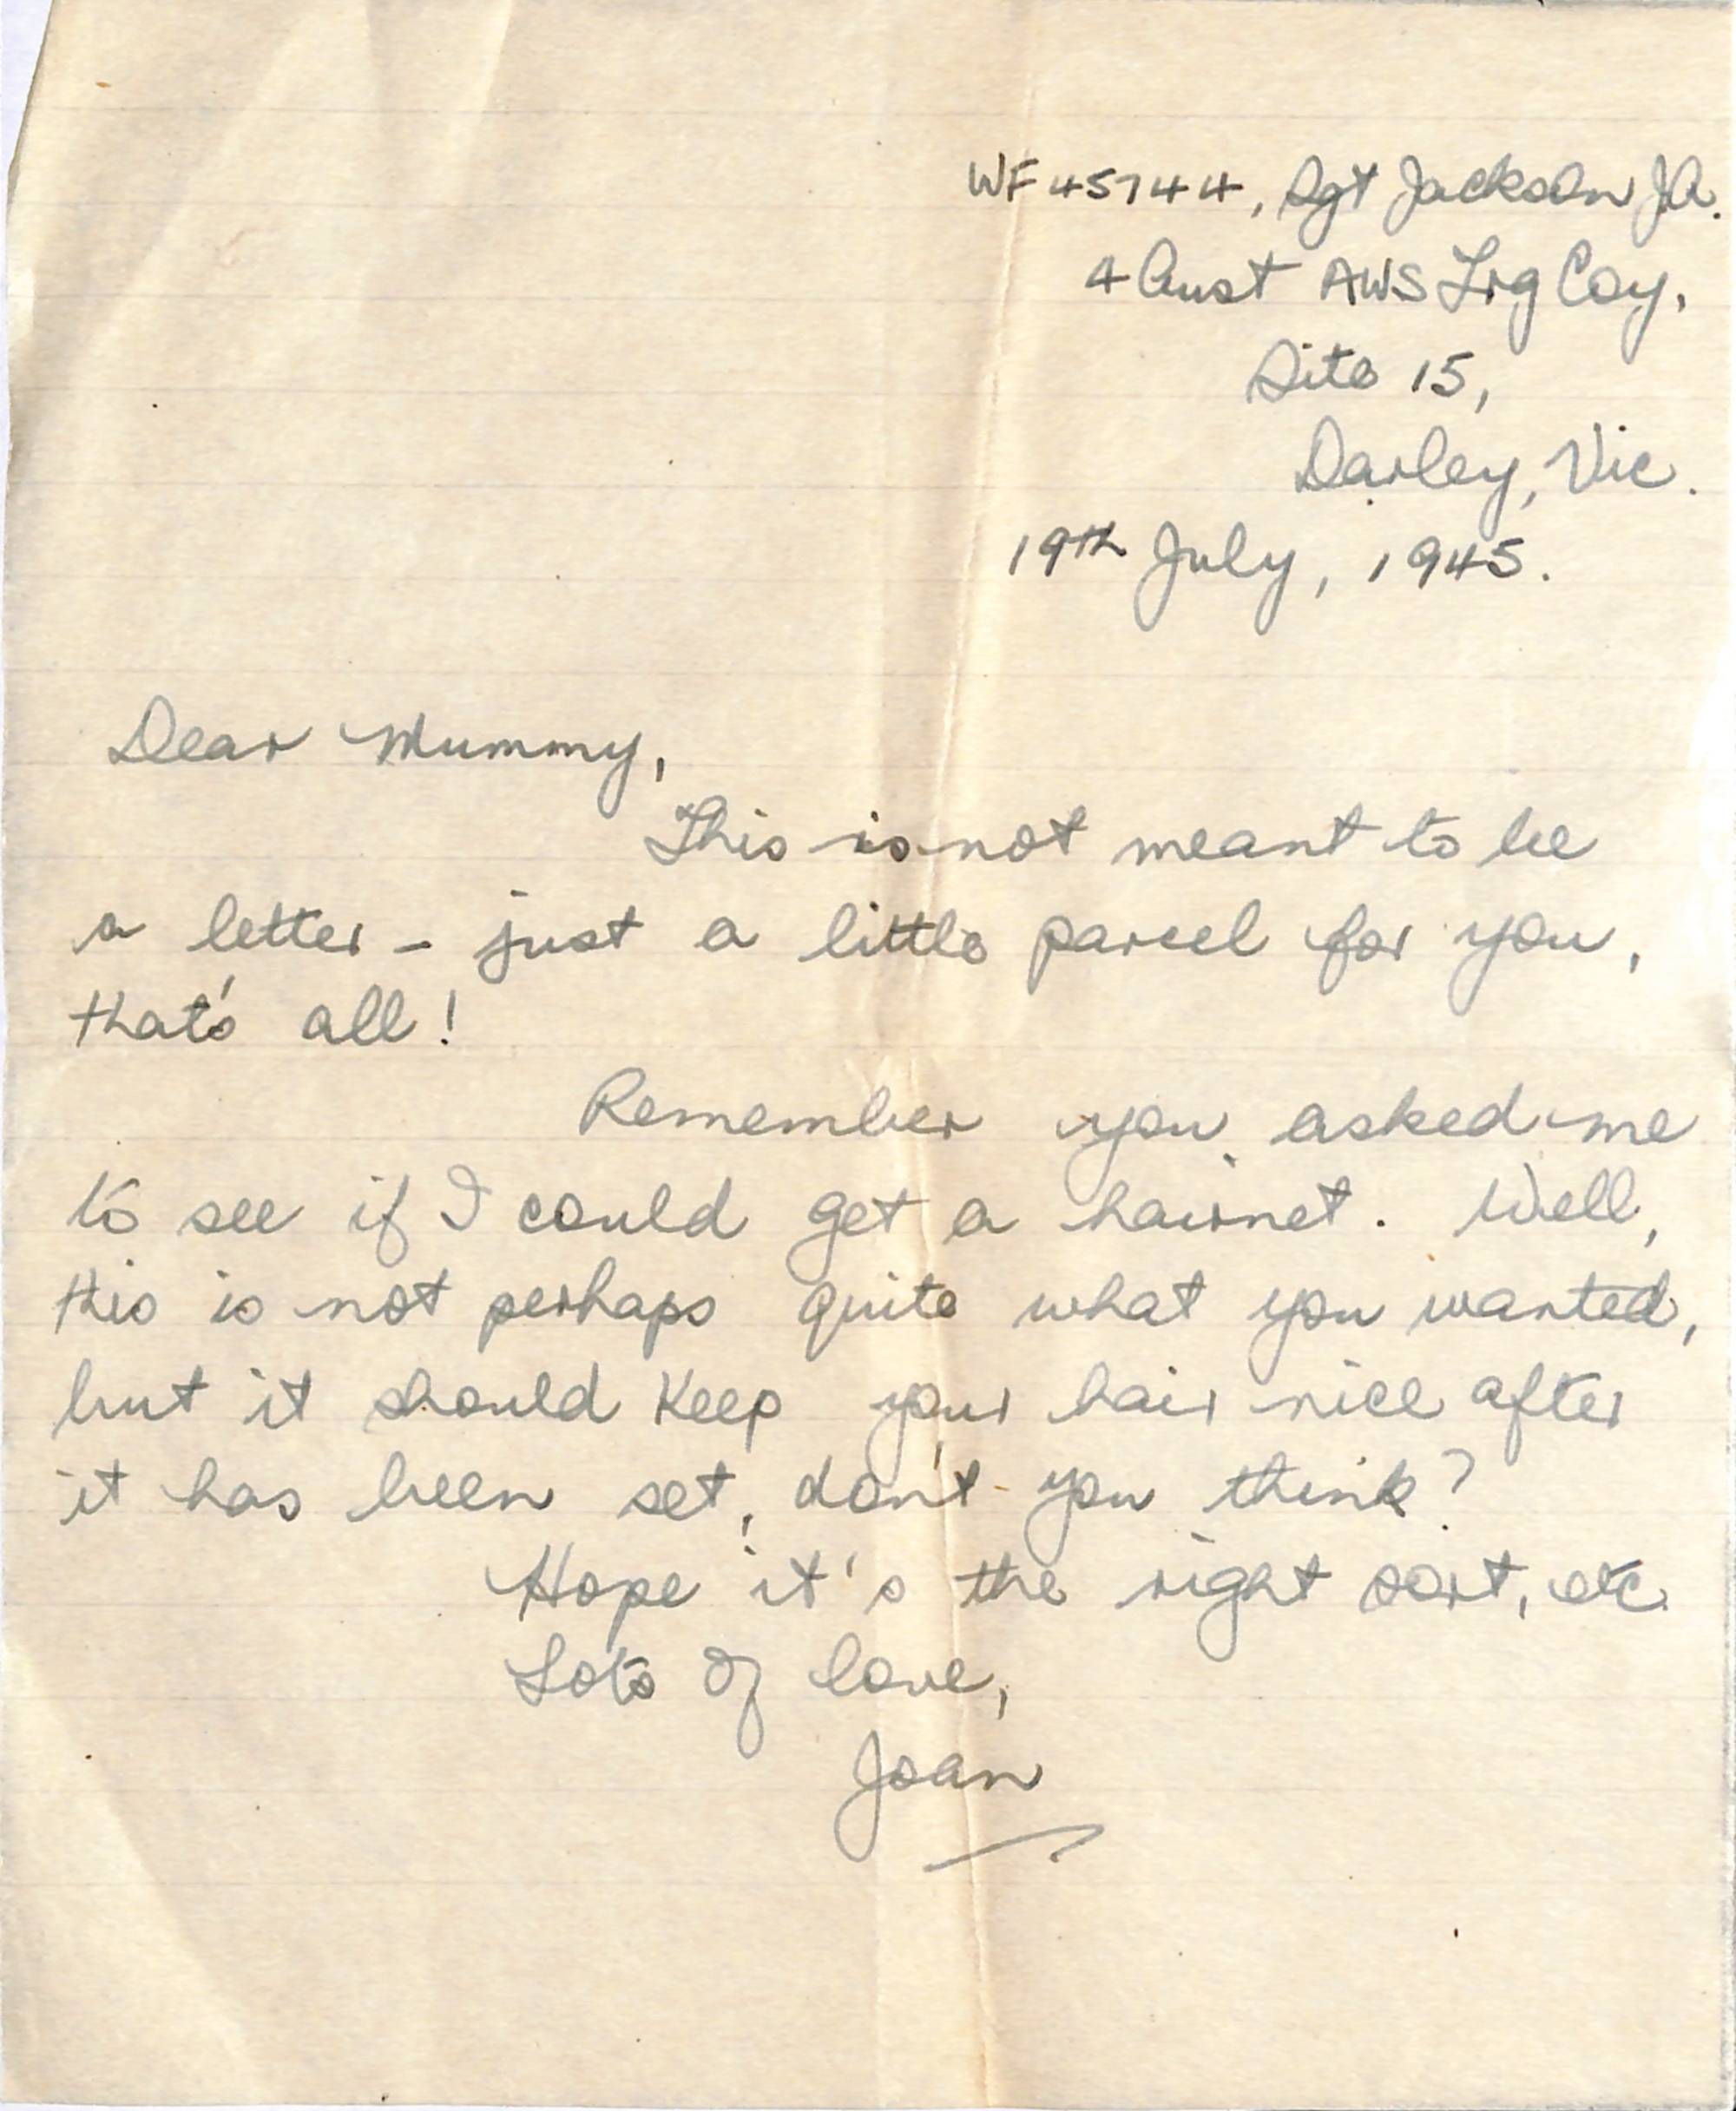 WF45744, Sgt Jackson J.A.
4 Aust AWS Trg Coy,
Site 15,
Darley, Vic.
19th July, 1945.
Dear Mummy,
This is not meant to be
a letter - just a little parcel for you,
that's all!
Remember you asked me
to see if I could get a hairnet. Well,
this is not perhaps quite what you wanted,
but it should keep your hair nice after
it has been set, don't you think?
Hope it's the right sort, etc.
Lots of love,
Joan